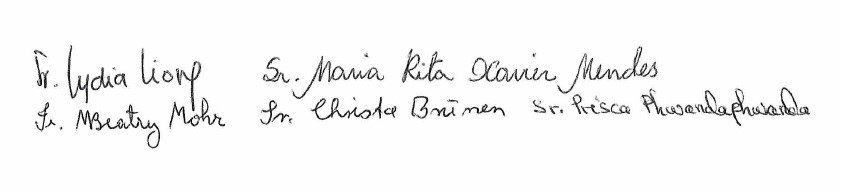 Sr. Lydia Liong Sr. Maria Rita Xavier Mendes
Sr. MBeatry Mohr Sr. Christa Brünen Sr. Prisca Phwandaphwanda